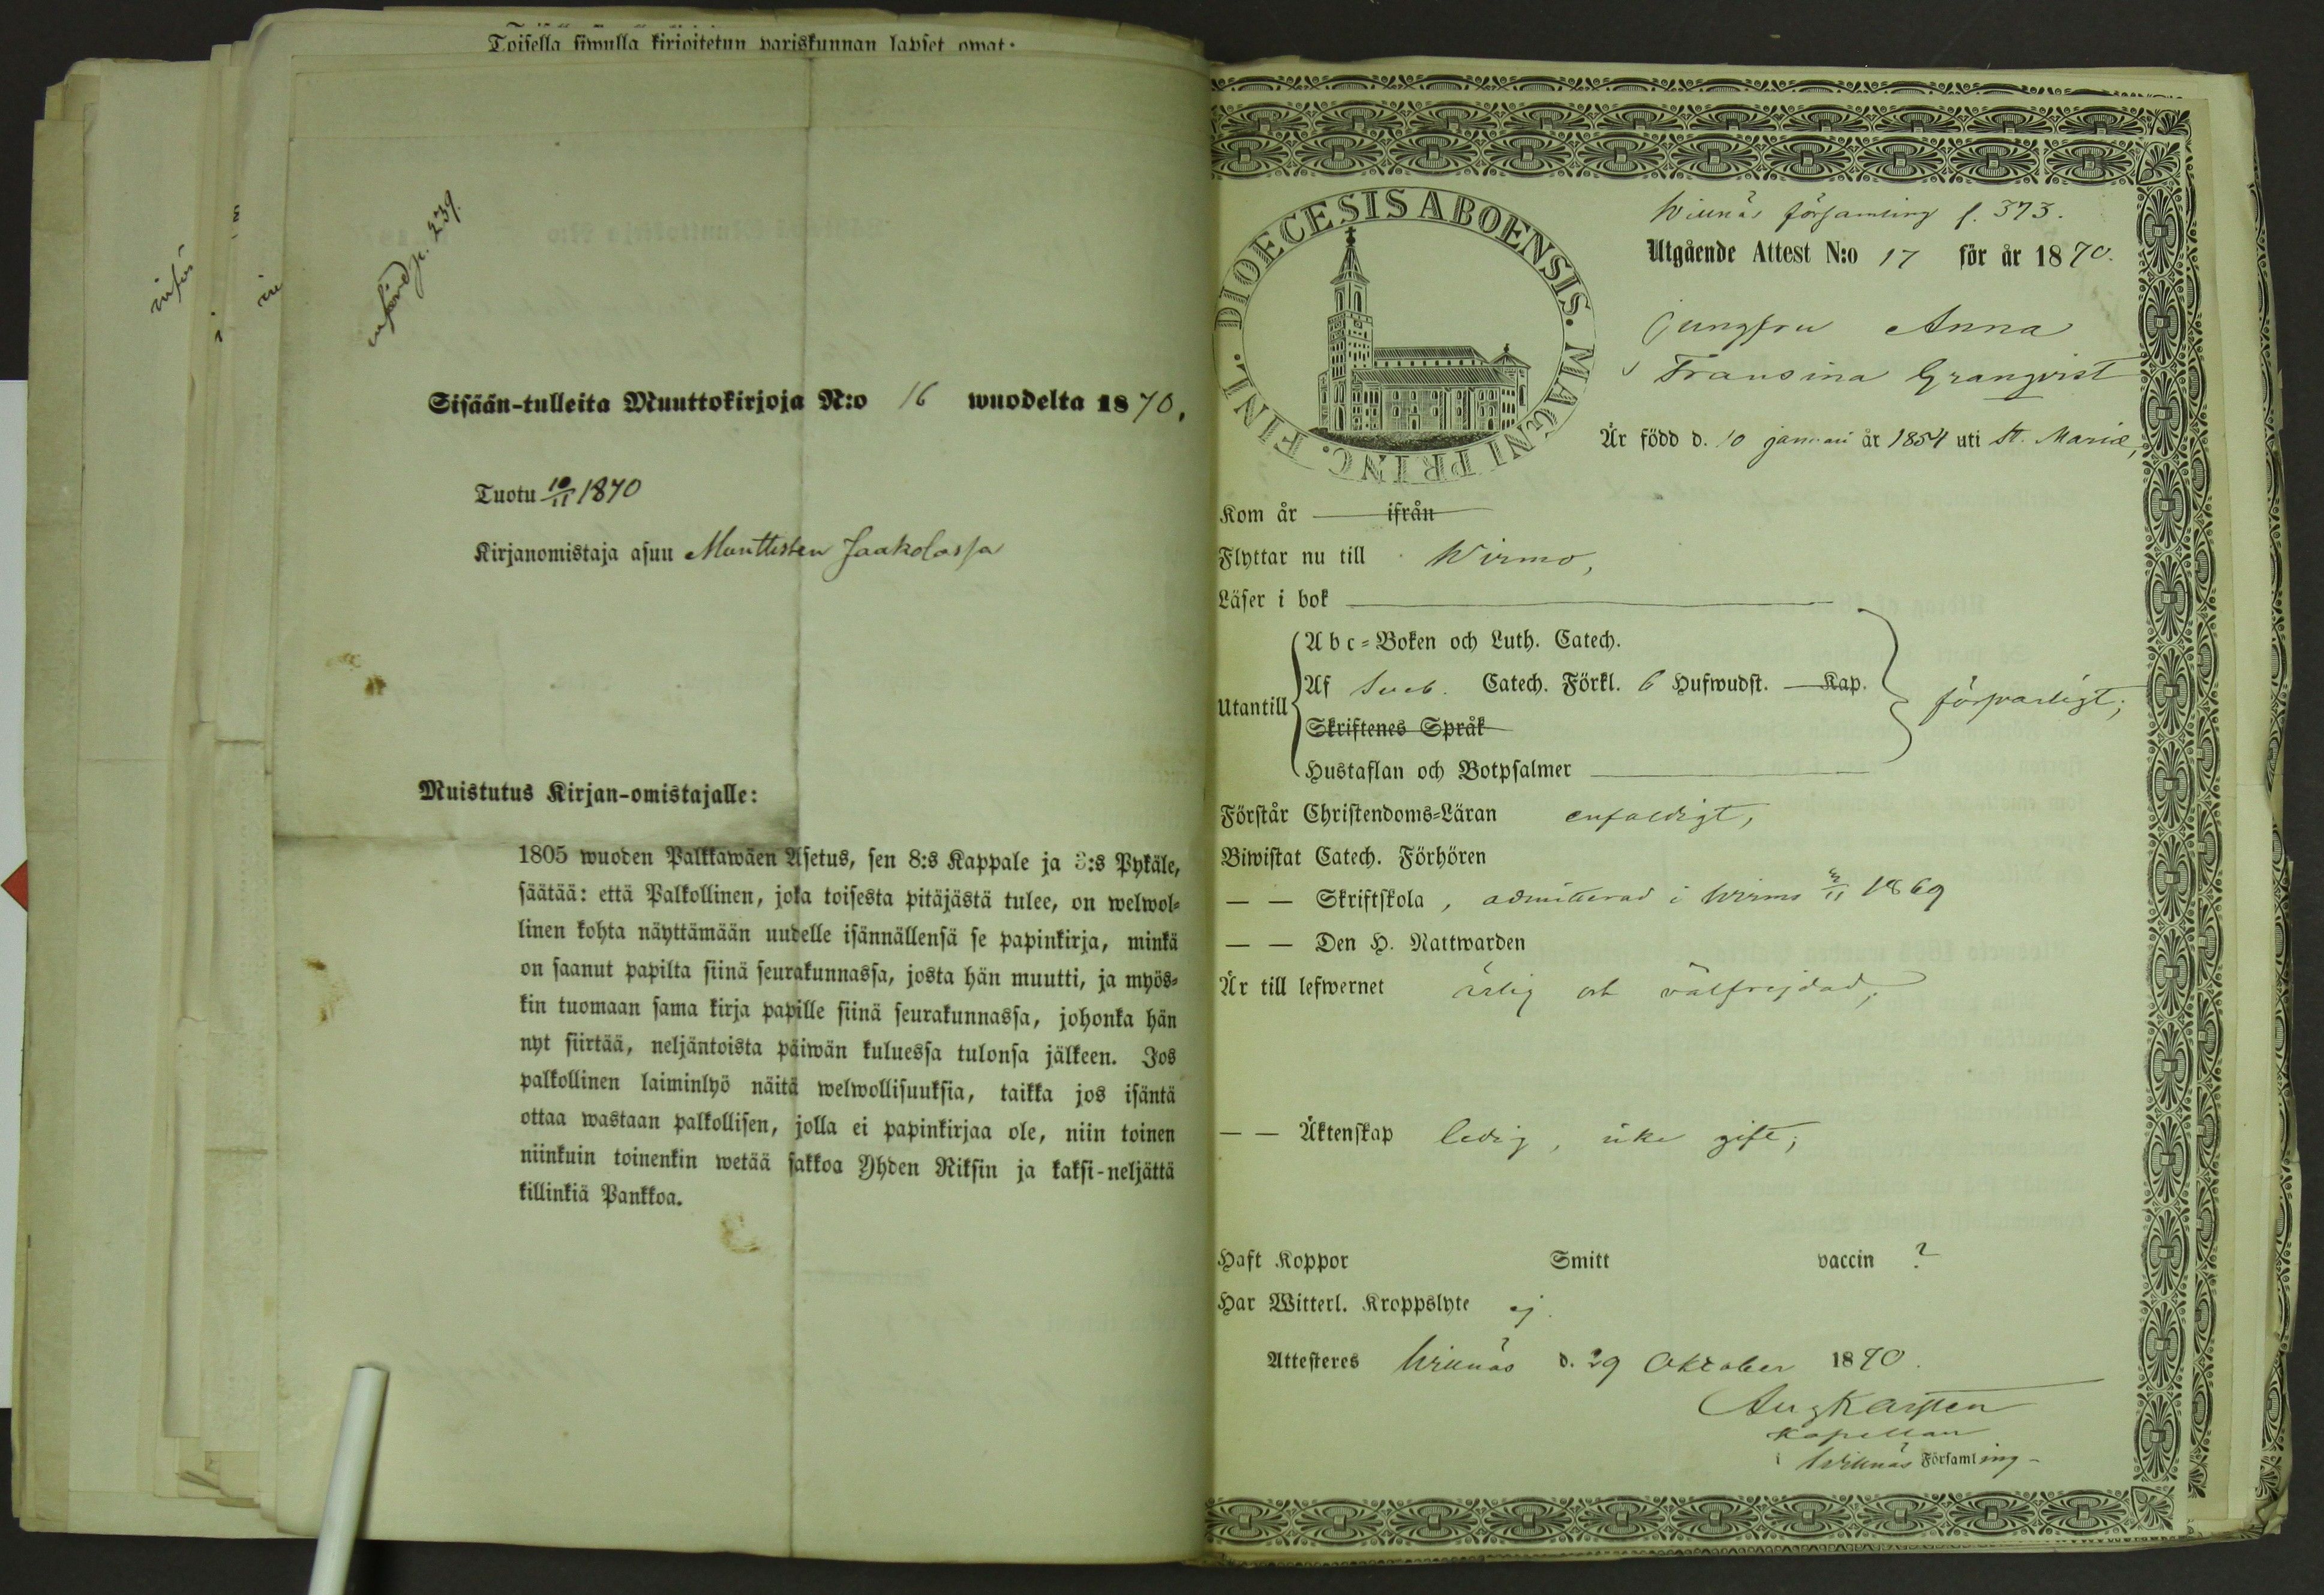 Toisella siwulla kirjoitetun pariskunnan lapset owat:
införd p. 239.
Sisään-tulleita Muuttokirjoja N:o 16 wuodelta 1870.
Tuotu 10/11 1870
Kirjanomistaja asuu Muuttisten Jaakolassa
Muistutus Kirjan-omistajalle:
1805 wuoden Palkkawäen Asetus, sen 8:s Kappale ja 3:s Pykäle,
säätää: että Palkollinen, joka toisesta pitäjästä tulee, on welwol-
linen kohta näyttämään uudelle isännällensä se papinkirja, minkä
on saanut papilta siinä seurakunnassa, josta hän muutti, ja myös-
kin tuomaan sama kirja papille siinä seurakunnassa, johonka hän
nyt siirtää, neljäntoista päiwän kuluessa tulonsa jälkeen. Jos
palkollinen laiminlyö näitä welwollisuuksia, taikka jos isäntä
ottaa wastaan palkollisen, jolla ei papinkirjaa ole, niin toinen
niinkuin toinenkin wetää sakkoa Yhden Riksin ja kaksi-neljättä
killinkiä Pankkoa.
DIOECESIS ABOENSIS. MAGNI PRINC. FINL.
Willnäs församling f. 373.
Utgående Attest N:o 17 för år 1870.
Jungfru Anna
Fransina Granqvist
Är född d. 10 januari år 1854 uti St. Mariæ,
Kom år ifrån
Flyttar nu till Wirmo,
Läser i bok
Utantill
Abc-Boken och Luth. Catech.
Af Sveb. Catech. Förkl. 6 Hufwudst. Kap.
Skriftenes Språk
Hustaflan och Botpsalmer
försvarligt;
Förstår Christendoms-Läran enfaldigt,
Biwistat Catech. Förhören
— — Skriftskola, admitterad i Wirmo 1869
— — Den H. Nattwarden
Är till lefwernet ärlig och välfrejdad;
— — Äktenskap ledig, icke gift;
Haft Koppor Smitt vaccin ?
Har Witterl. Kroppslyte ej.
Attesteres Willnäs d. 29 Oktober 1870.
Aug Karsten
Kapellan
i Willnäs Församling